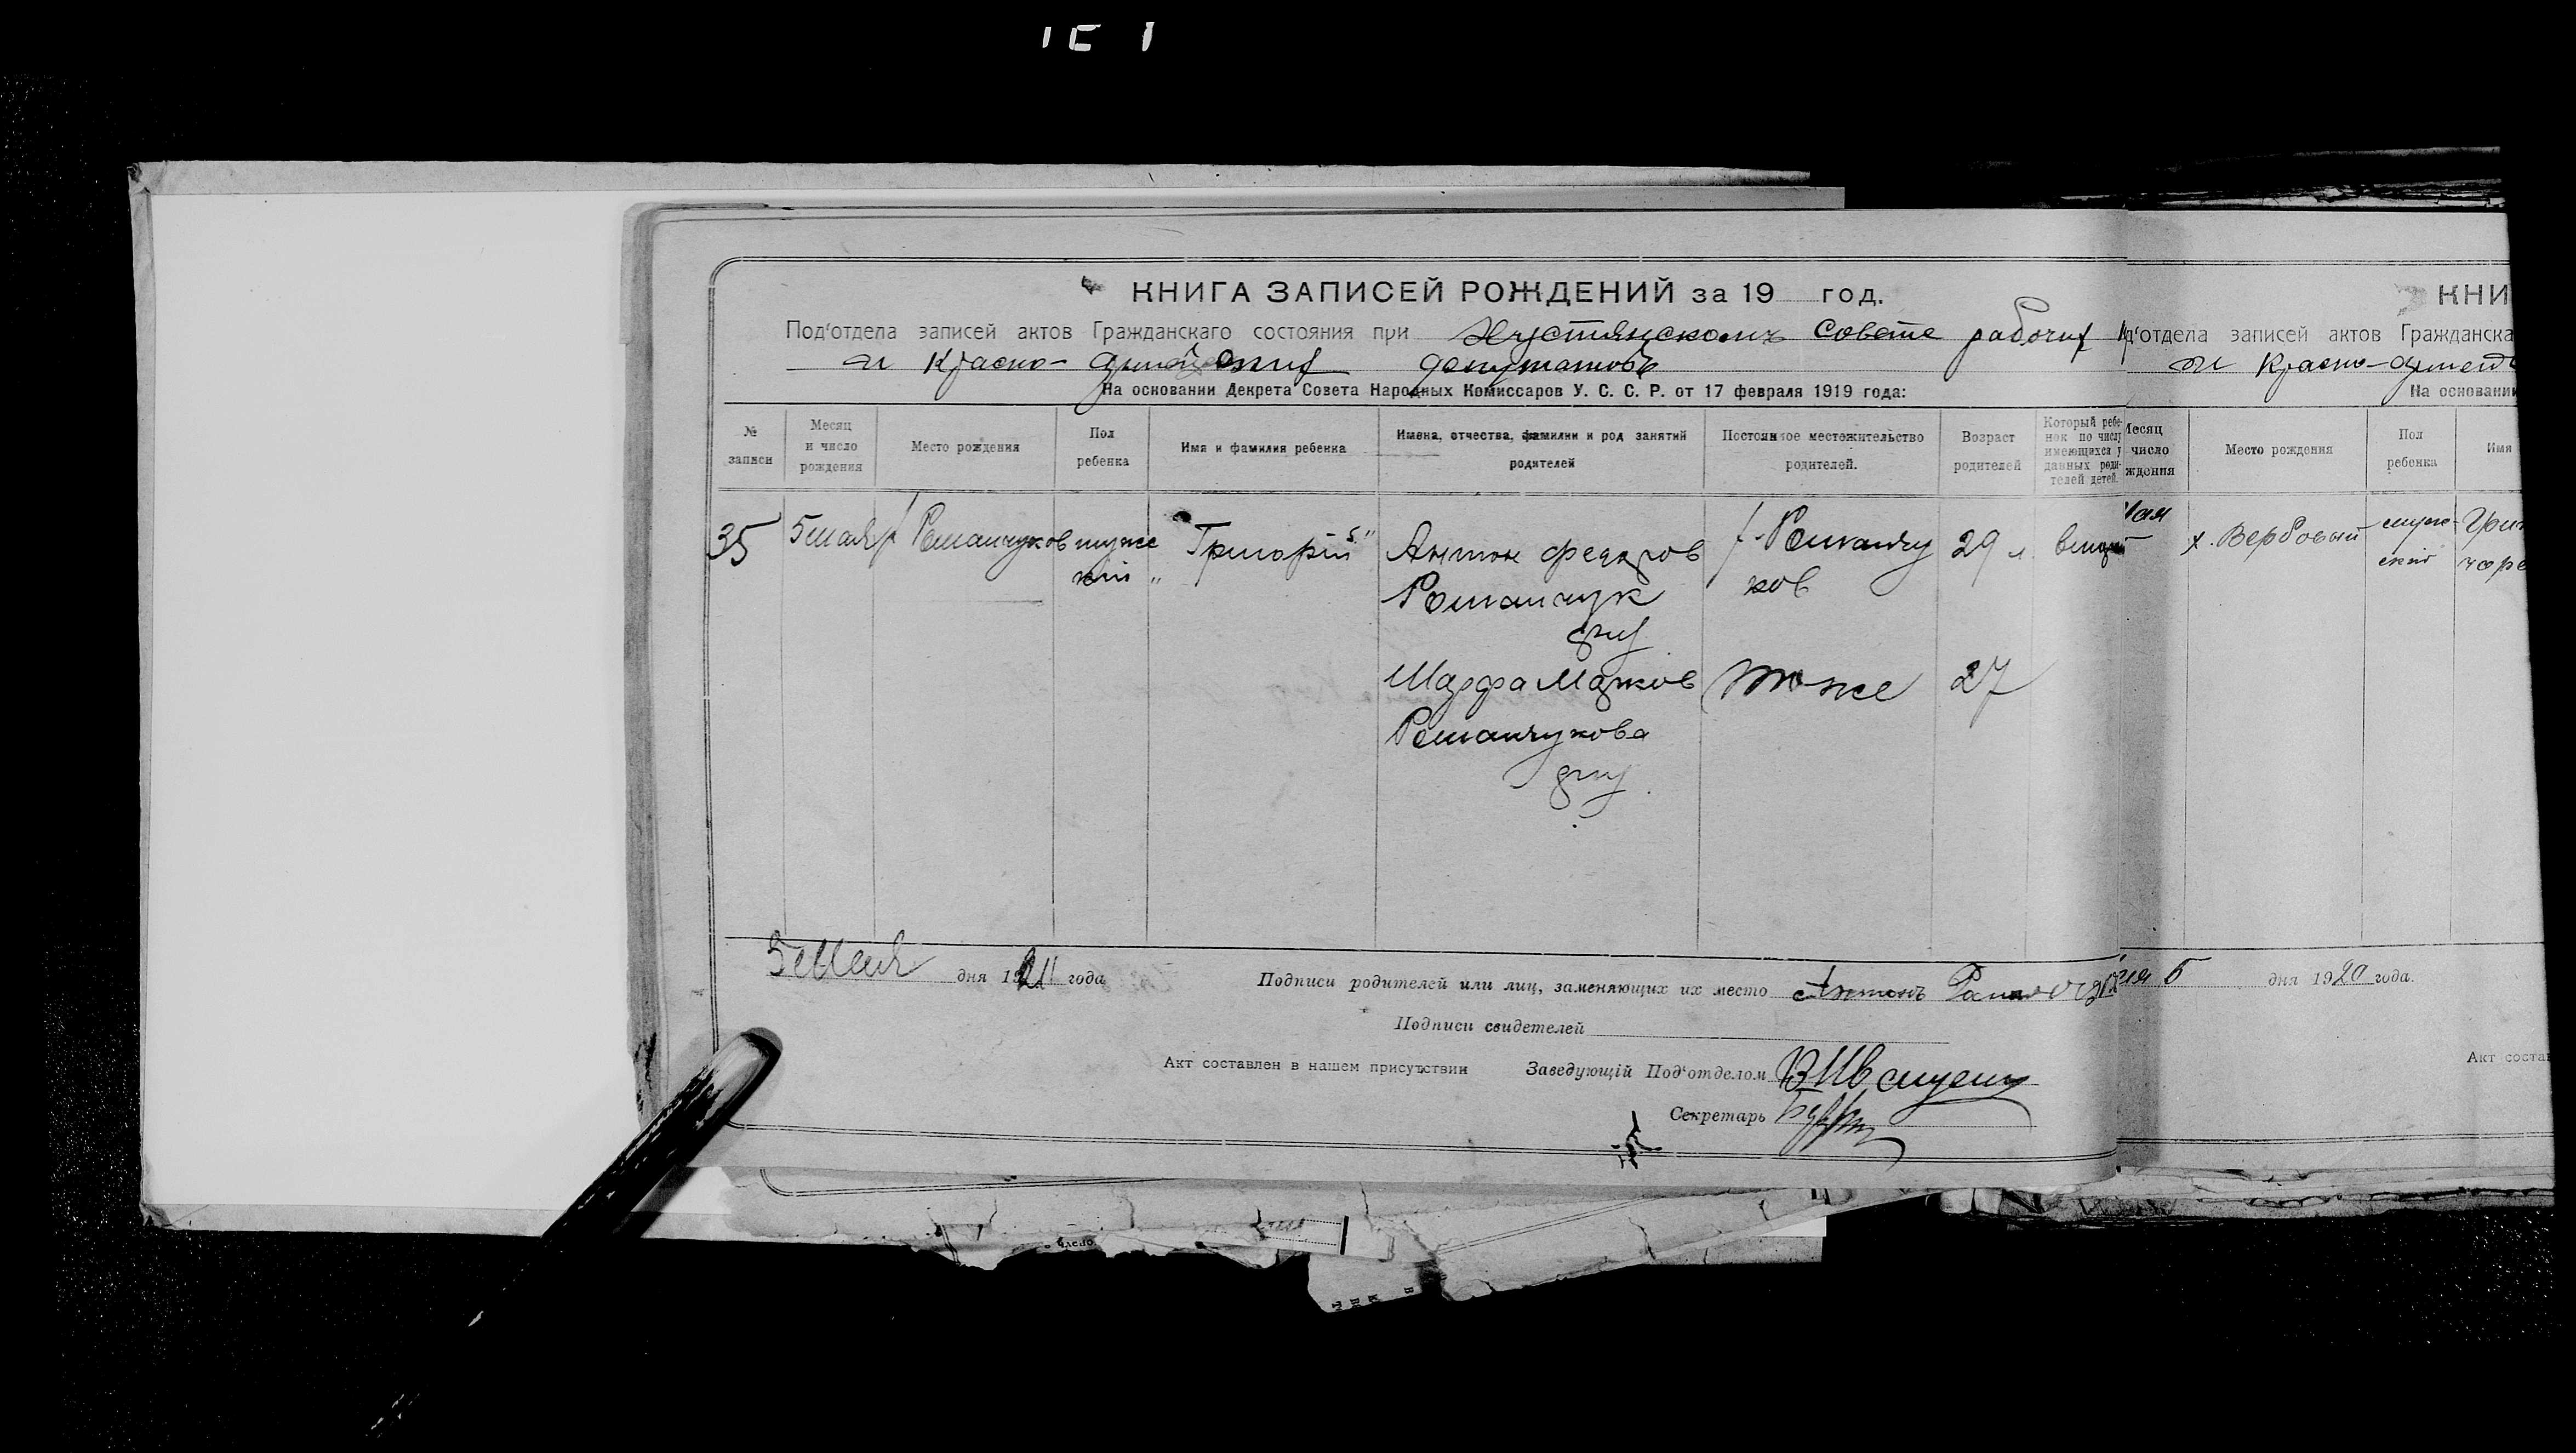 КНИГА ЗАПИСЕЙ РОЖДЕНИЙ за 19 год.
Под'отдела записей актов Гражданскаго состояния при Хустянскомъ Совете рабочих
и Красно-армейских депутатовъ
На основании Декрета Совета Народных Комиссаров У. С. С. Р. от 17 февраля 1919 года:
№ записи
Месяц и число рождения
Место рождения
Пол ребенка
Имя и фамилия ребенка
Имена, отчества, фамилии и род занятий родителей
Постоянное местожительство родителей.
Возраст родителей
Который ребенок по числу имеющихся у данных родителей детей.
35
5 мая
х Романчуков
мужс
кій
"Григорій"
Антон Федоров
Романчук
х. Романчу
ков
29 л.
Марфа Марков
Романчукова
тоже
27
5 Мая дня 1921 года
Подписи родителей или лиц, заменяющих их место Антонъ Романчук
Подписи свидетелей
Акт составлен в нашем присутствии Заведующій Под'отделом
Секретарь
КНИ
отдела записей актов Гражданска
и Красно-армей
На основании
Месяц
число
ждения
Место рождения
Пол ребенка
Имя
мая
х. Вербовый
муж
ский
Гри
5 дня 1920 года.
Акт состав